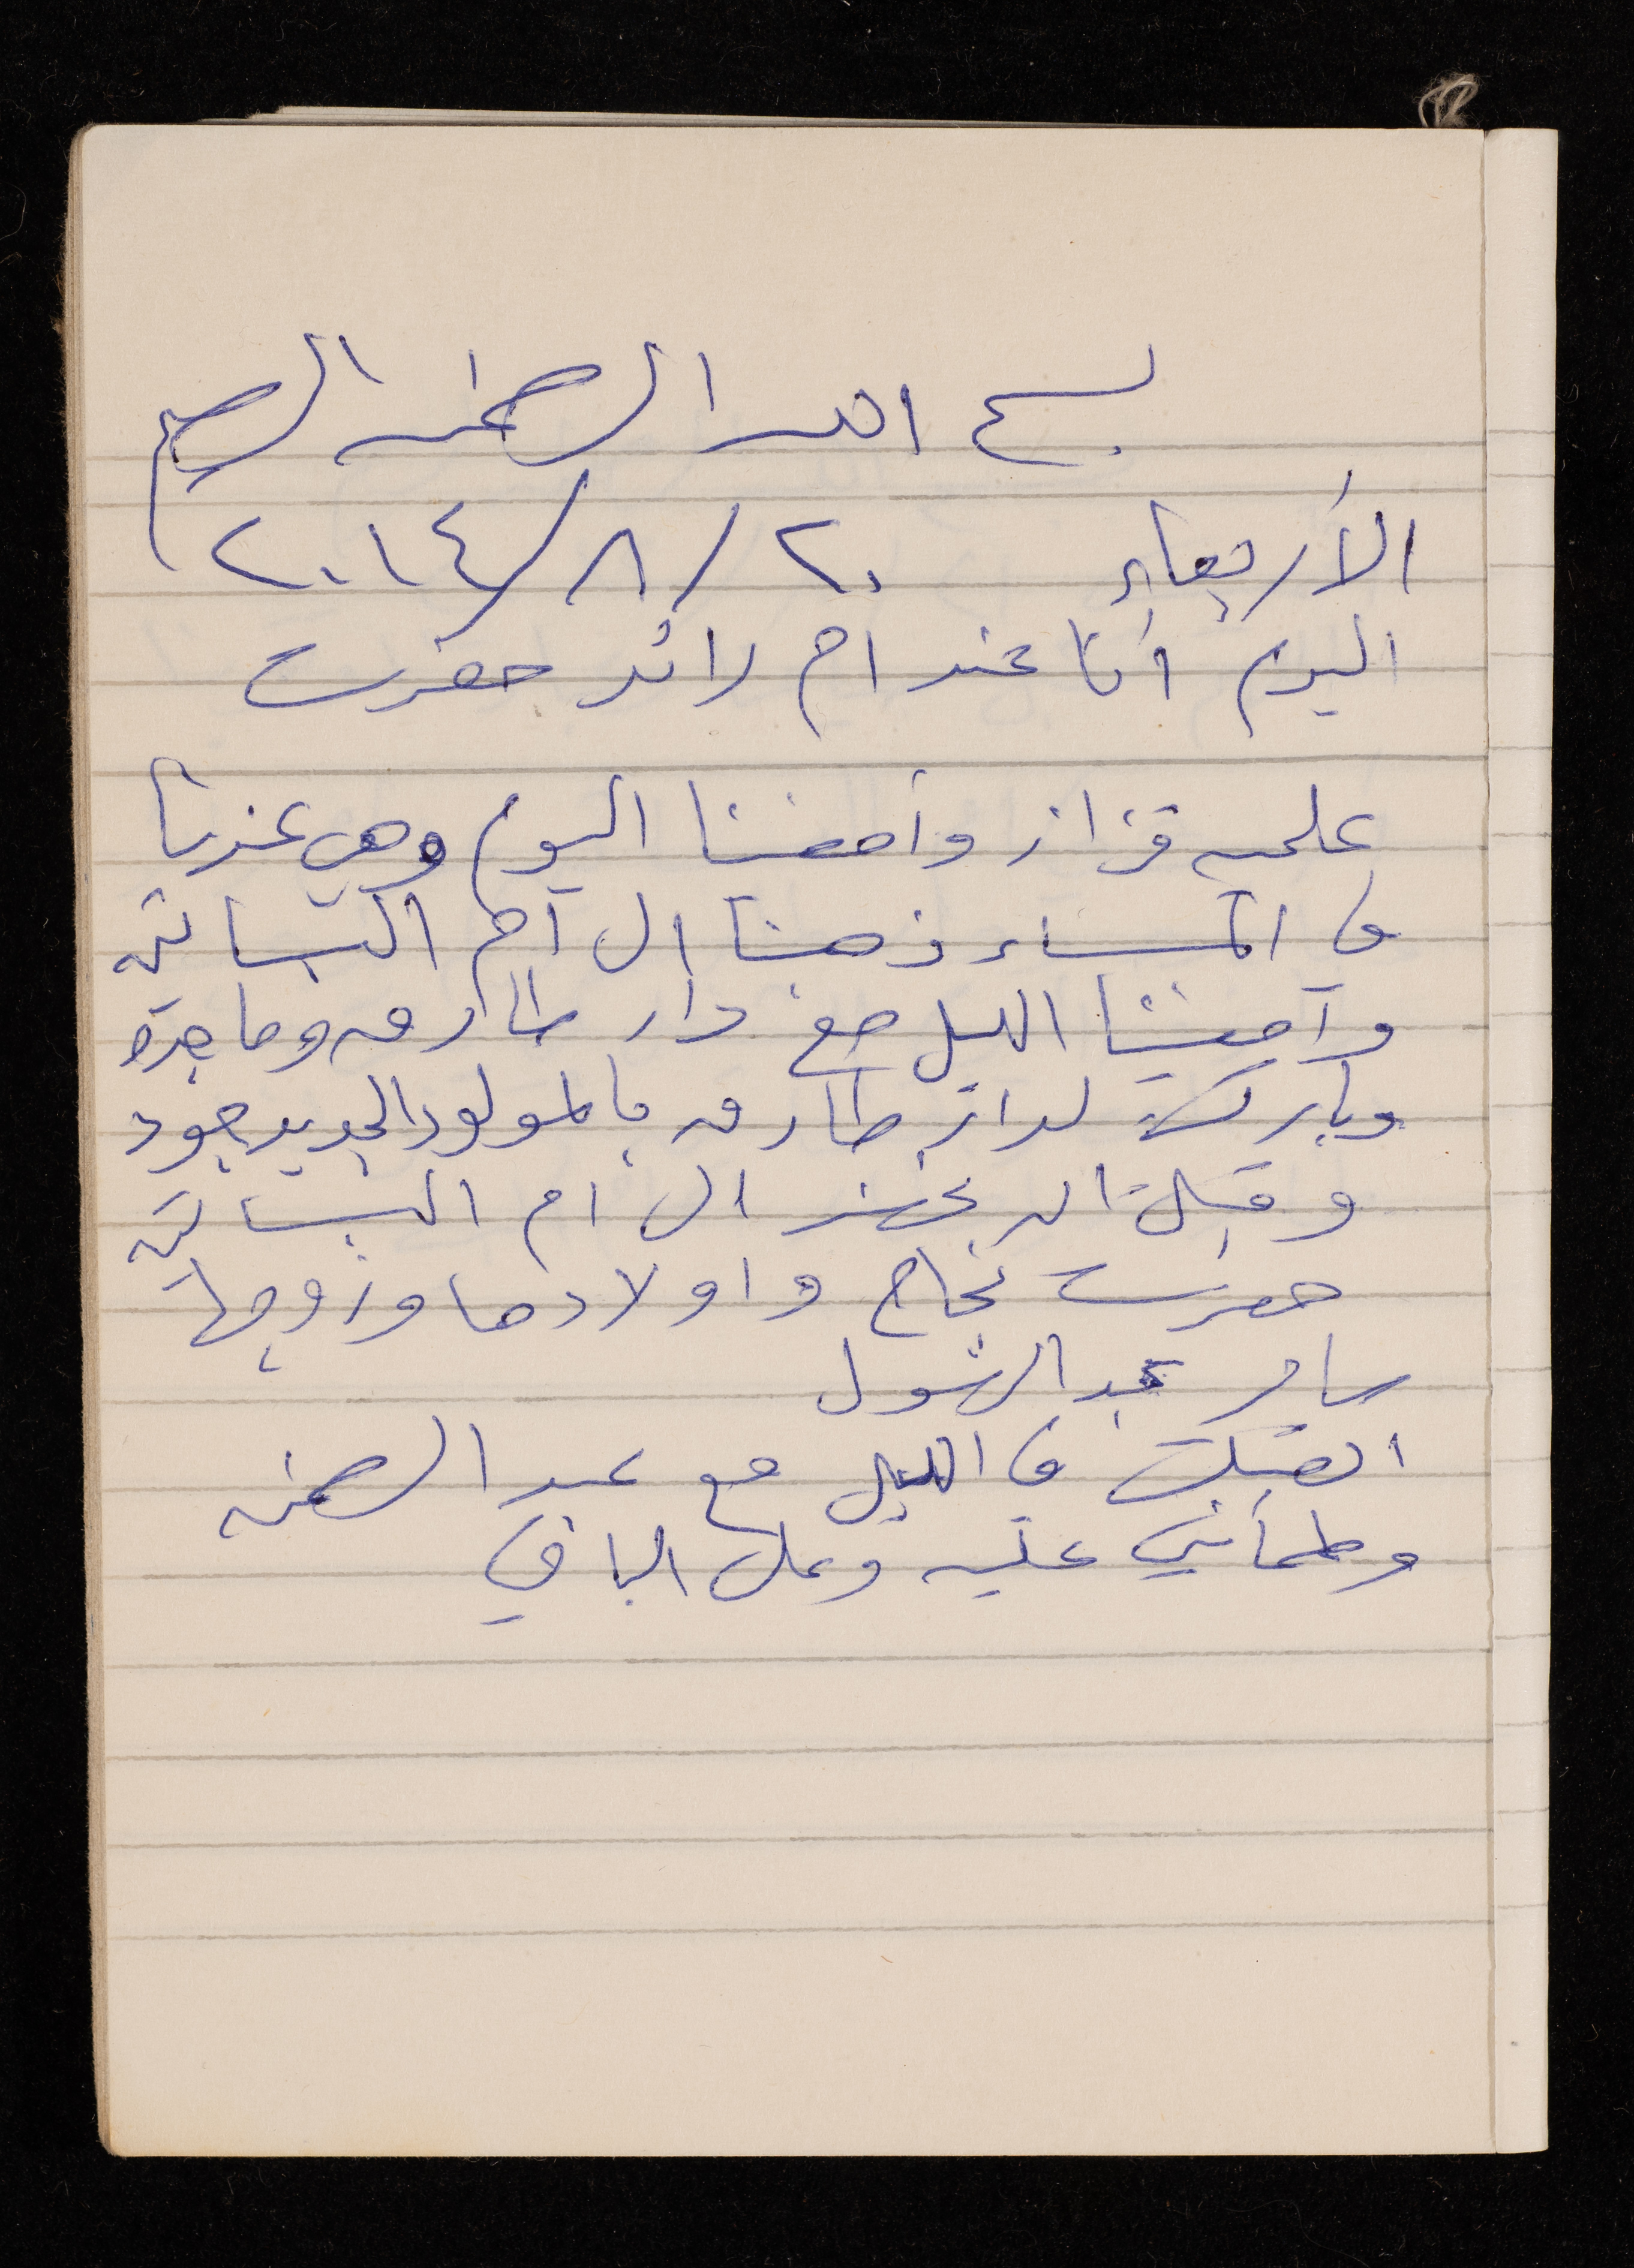 بسم الله الرحمن الرحيم
الأربعاء ٢٠/٨/٢٠١٤
اليوم أنا عند ام رائد حضرت
علميه قزاز وأمضينا اليوم وهي عندنا
في المساء ذهبنا الى أم البساتين
وأمضينا الليل مع دار طارق وماجدة
وباركت لدار طارق بالمولود الجديد جود
وقبل ان نحضر الى ام البساتين
حضرت نجاح واولادها وزوجها
سامر عبد الرسول
اتصلت في الليل مع عبد الرحمن
وطمأنني عليه وعلى الباقي